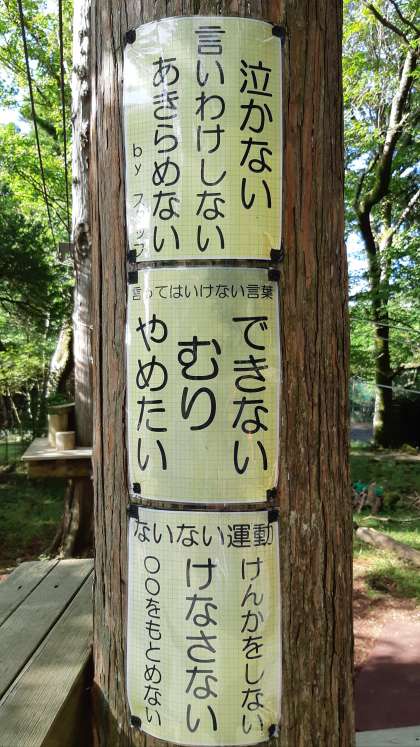 泣かない
言いわけしない
あきらめない
by フッフ
言ってはいけない言葉
できない
むり
やめたい
ないない運動
けんかをしない
けなさない
○○をもとめない